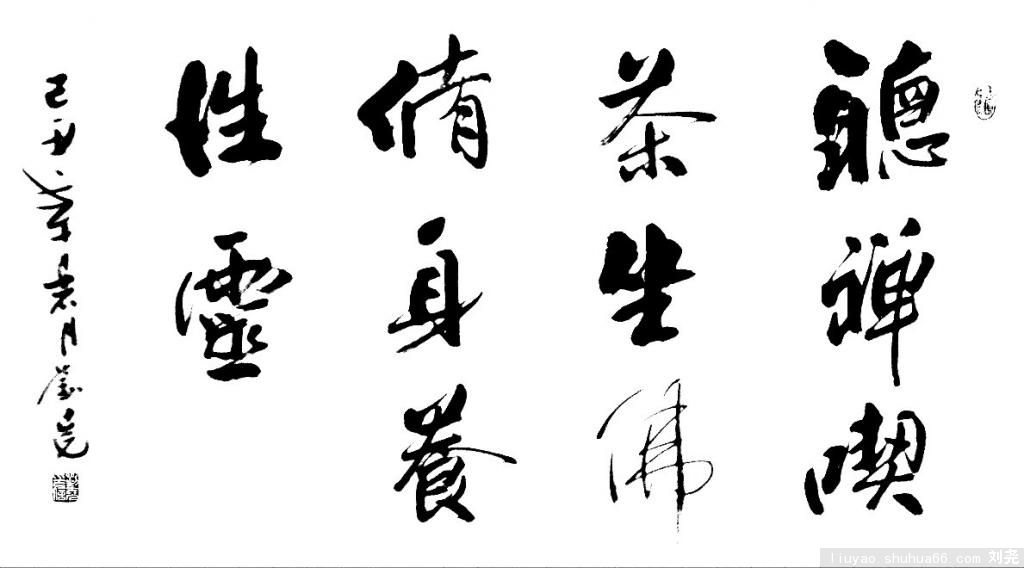 聽禪喫
茶坐佛
脩身養
性靈
己丑 月劉堯
liuyao.shuhua66.com 刘尧